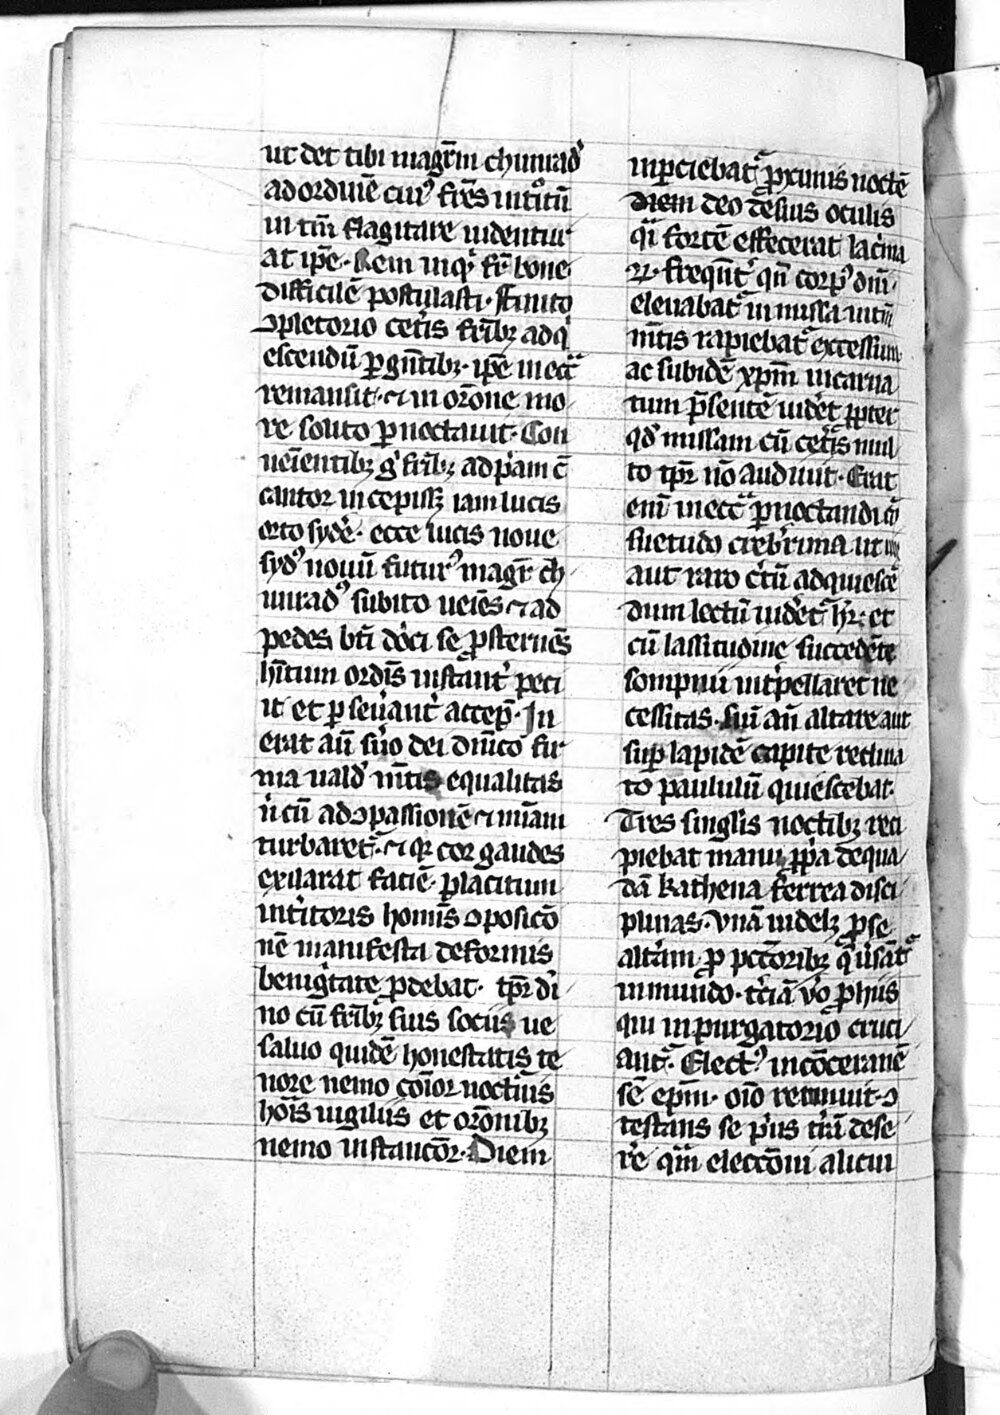 ut det tibi magr̄m chunrad᾿
ad ordinē cui᾿ fr̄es intōtū
in tm̄ flagitare uidentur
at ip̄e. Rem inqͥ fr̄ bone
difficilē postulasti. Finito
ↄpletorio cet͛is fr̄ibꝫ ad qͥ
escendū ꝑgn̄tibꝫ. ip̄e in ecc͛a
remansit. ⁊ in or̄one mo
re solito ꝑnoctauit. Con
ueīentibꝫ gͦ fr̄ibꝫ ad pͥam c̄
cantor incepissꝫ iam lucis
orto syde͛. ecce lucis noue
syd᾿ nouū futur᾿ magr̄ ch
unrad᾿ subito ueīes ⁊ ad
pedes bt̄i dōci se ꝓsternēs
hītum ordīs instant͛ peci
it et ꝑseuāut͛ accep̄. In
erat aū s͛uo dei dn̄ico fir
ma uald᾿ mn̄tis equalitas
n͛ cū ad ↄpassionē ⁊ mīam
turbaret᷑. ⁊ qꝛ cor gaudēs
exilarat faciē. placitum
int͛ioris homīs ↄposicō
nē manifesta deformis
benigͥtate ꝓdebat. tp̄r di
no cū fr̄ibꝫ suis sociis ue
saluo quidē honestatis te
nore nemo cōīor noct͛nis
hoīs uigiliis et or̄onibꝫ
nemo instancōr. Diem
inꝑciebat᷑ ꝓximis noctē
diem deo defuis oculis
qͣi fortē effecerat lac͛ma
ꝝ. freqn̄t᷑ qn̄ corp᾿ dn̄i
eleuabat᷑ in missa intm̄
mn̄tis rapiebat᷑ excessum
ac si ibidē xp̄m incarna
tum p̄sentē uid͛et ꝓpter
qd᾿ missam cū cet͛is mul
to tp̄r nō audiuit. Erat
enī in ecc͛a ꝑnoctandi cō
suetudo creb͛rima. ut
aut raro c͛tū adquiescē
dum lectū uid͛et᷑ hr̄e. et
cū lassitudine succedēte
sompnū int͛pellaret ne
cessitas. siū aū altare aut
suꝑ lapidē capite reclina
to paululū quiescebat.
Tres singlis noctibꝫ reci
piebat manu ꝓp͛a de qua
dā kathena ferrea disci
plinas. Vnā uidelꝫ ꝓ se
alt͛am ꝓ pctoribꝫ qͥ u͛sāt᷑
in mundo. t͛ciā uͦo ꝓ hiis
qui in purgatorio cruci
ant᷑. Elect᾿ in cōceranē
sē ep̄m. oīo renuuit. ↄ
testans se pͥus t͛rā dese
re qͣm eleccōni alicui